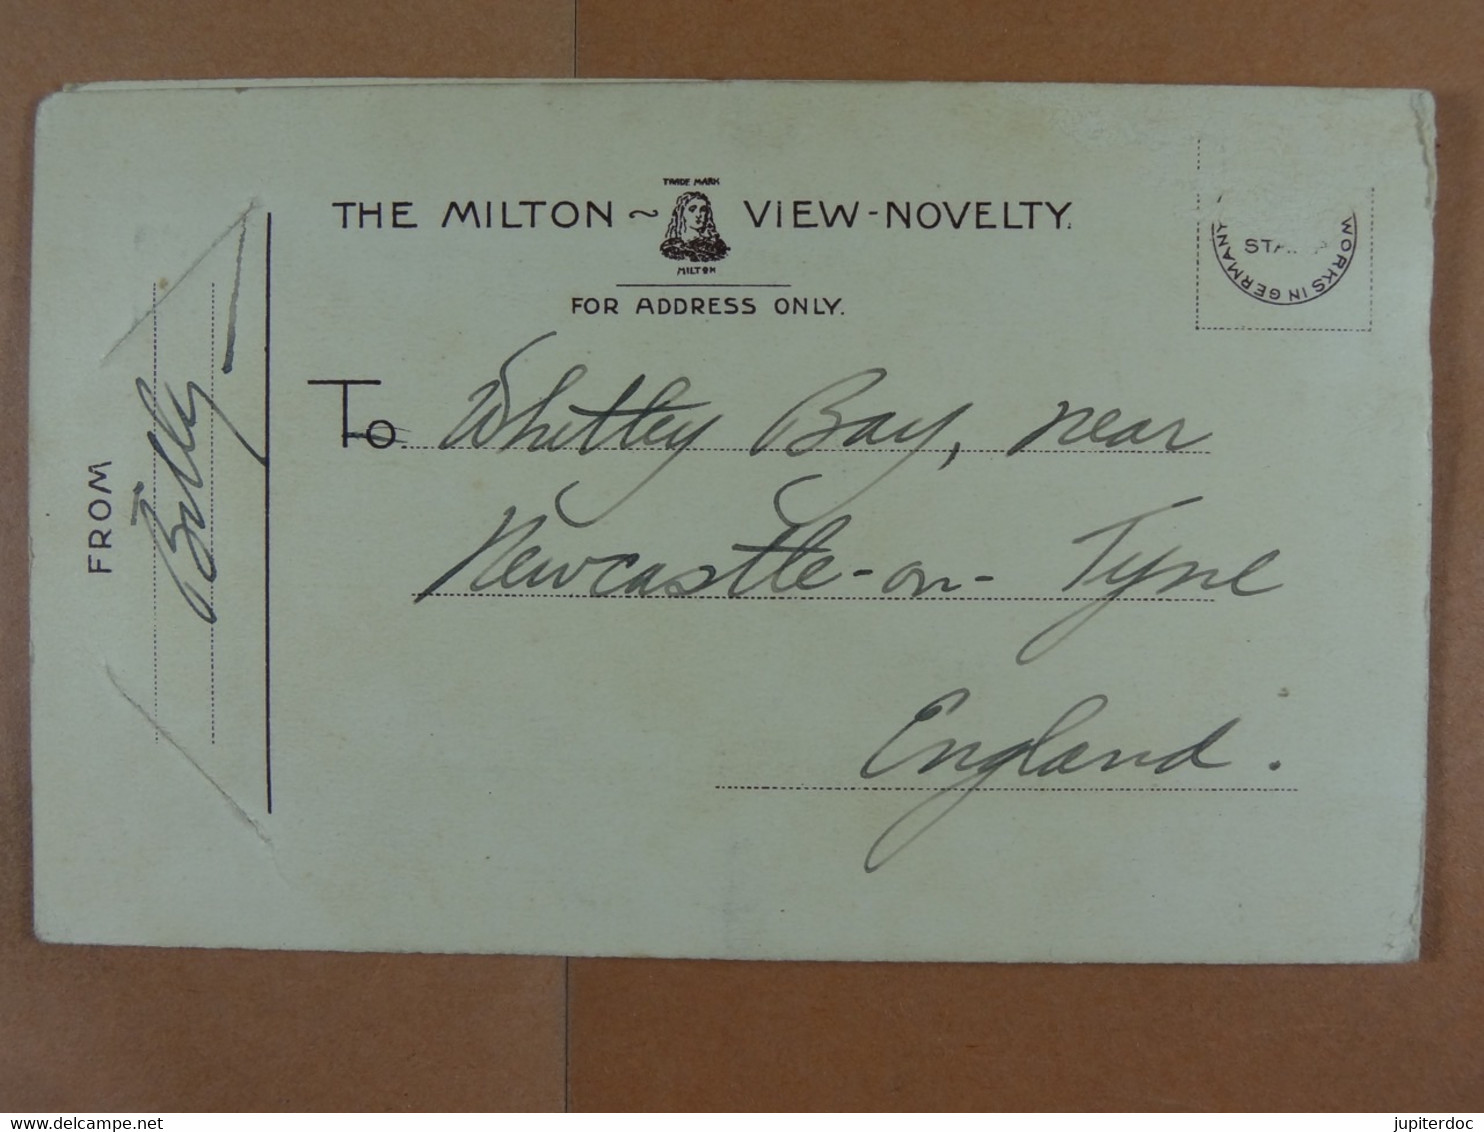 TRADE MARK
THE MILTON ~ VIEW-NOVELTY.
MILTON
FOR ADDRESS ONLY.
WORKS IN GERMANY
FROM
Billy
To Whitley Bay, near
Newcastle-on-Tyne
England.
jupiterdoc